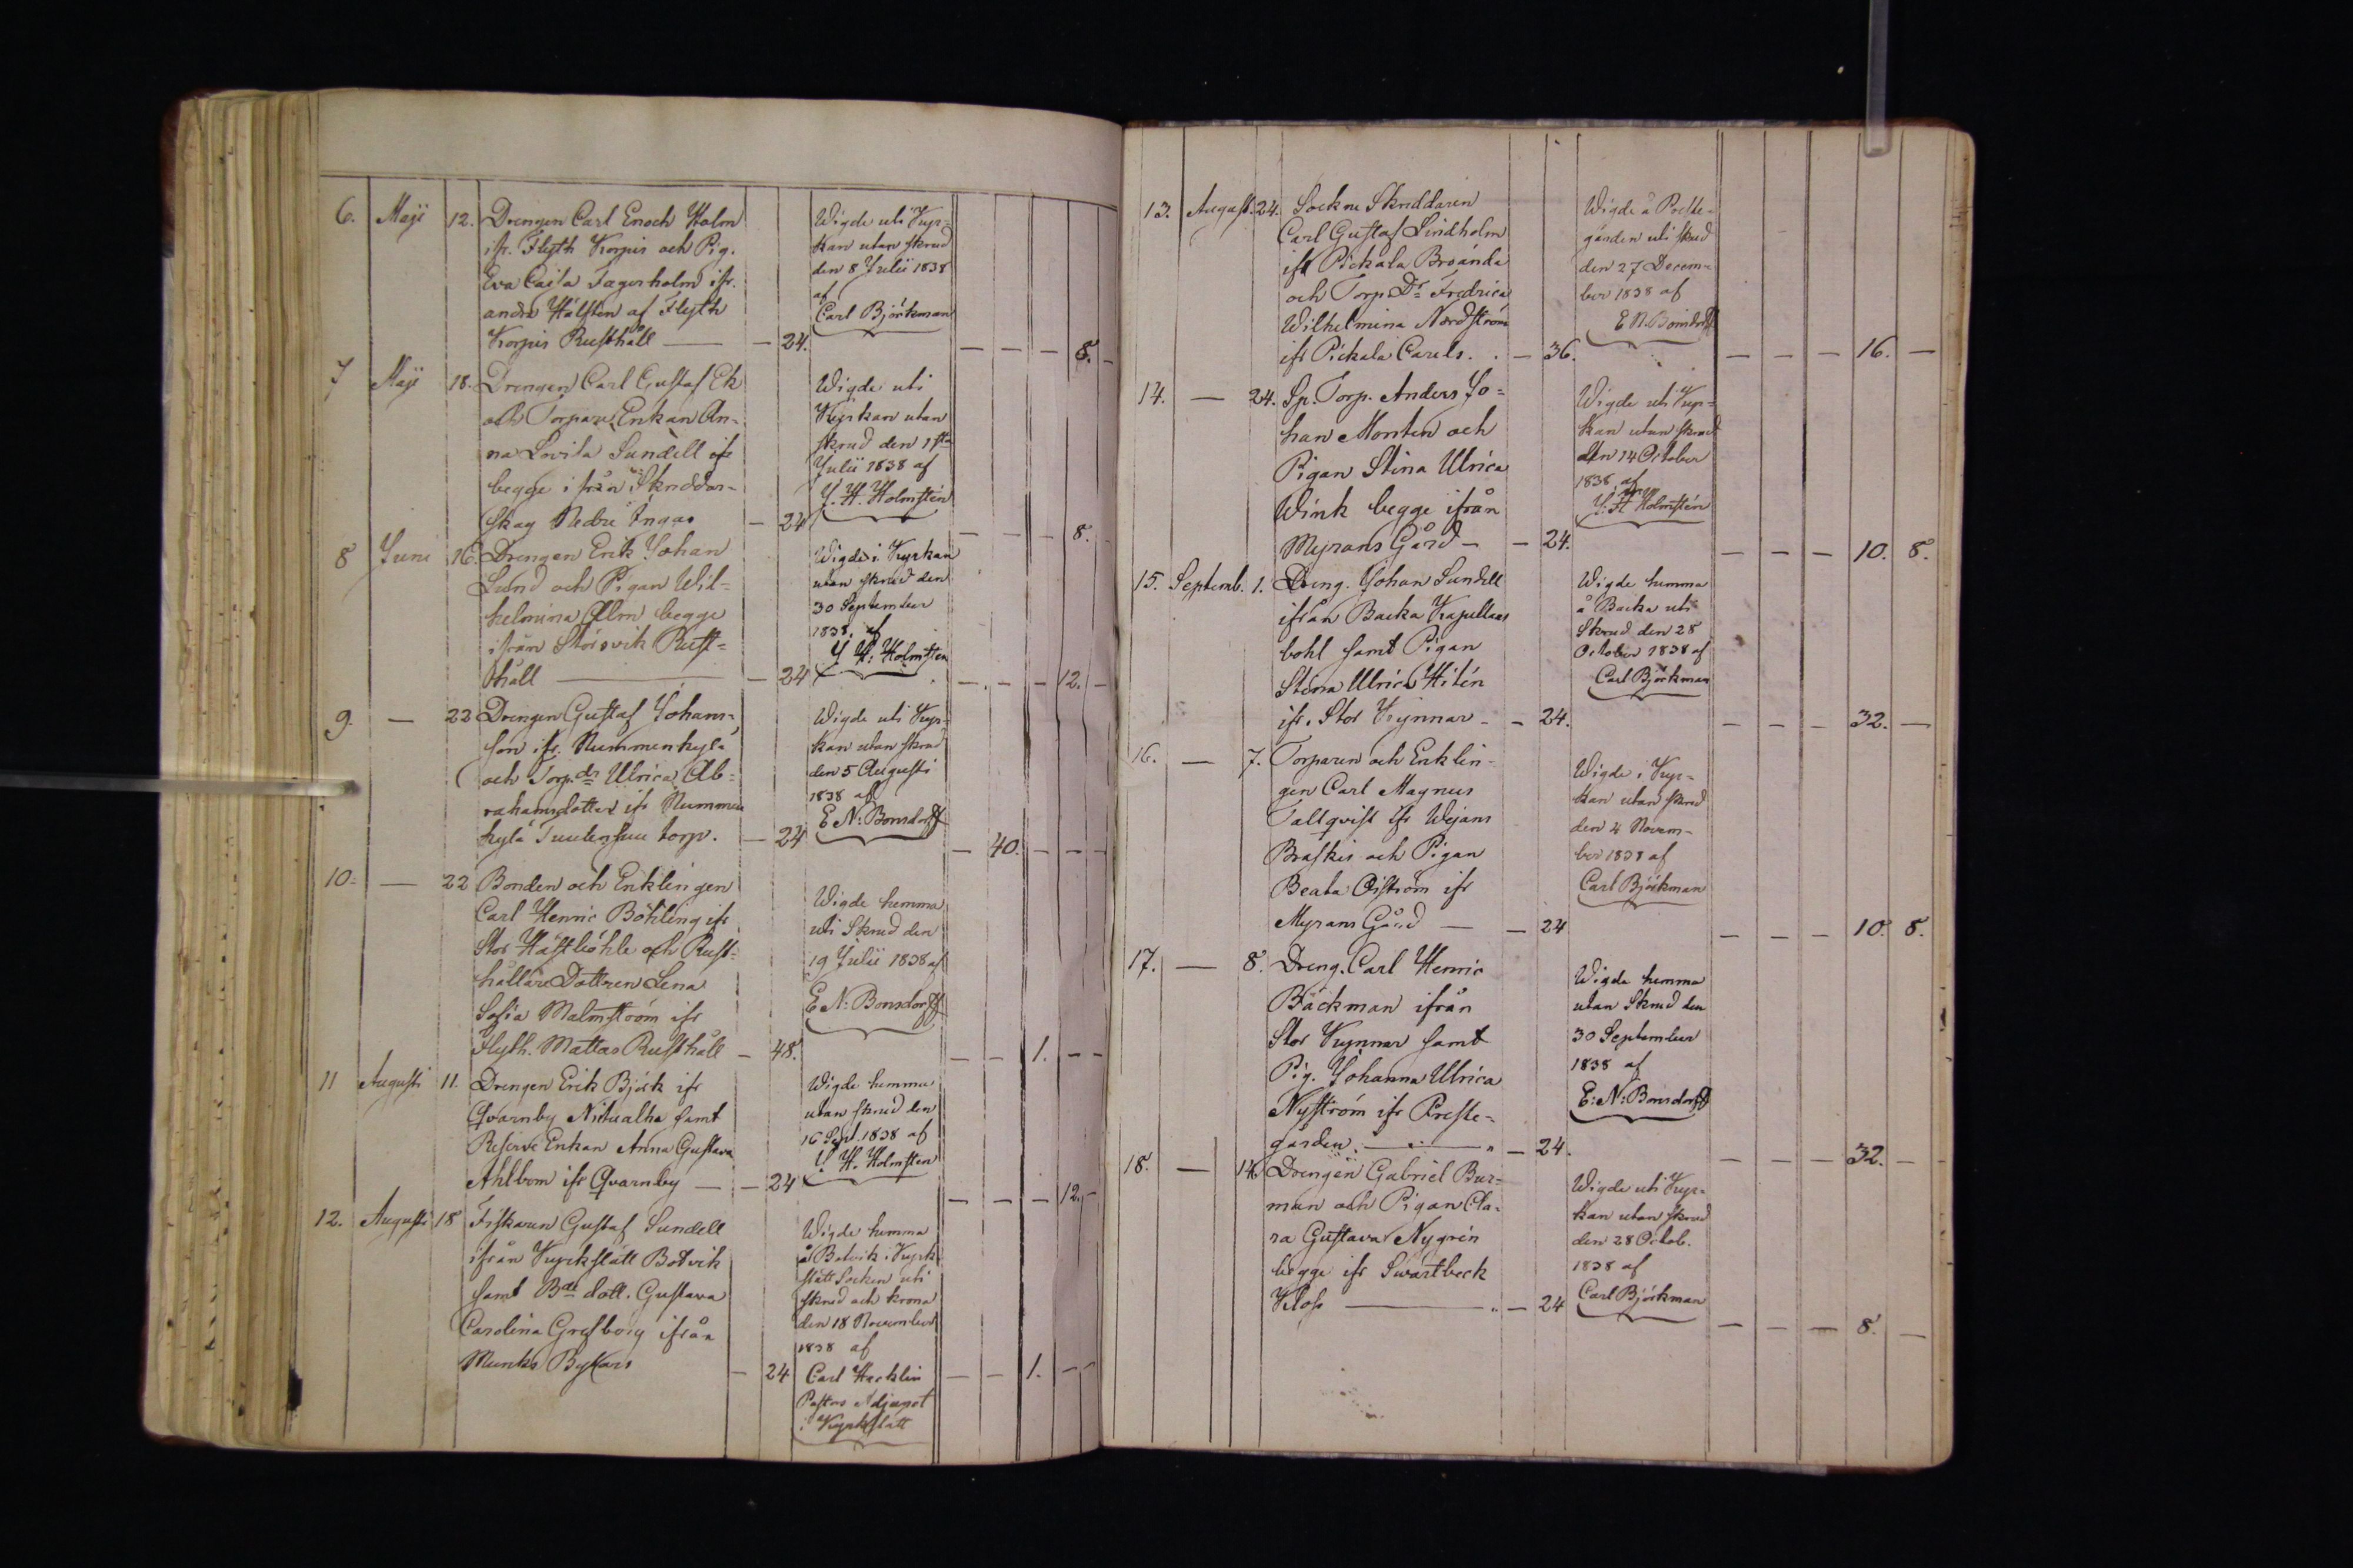 6. Maji 12. Drengen Carl Enoch Holm
ifr. Flyth Korpis och Pig.
Eva Caisa Fagerholm ifr.
andra Hälften af Flyth
Korpis Rusthåll — — 24.
Wigde uti Kyr-
kan utan skrud
den 8 Julii 1838
af
Carl Björkman
— — — 8. —
7 Maji 18. Drengen Carl Gustaf Ek
och Torpare Enkan An-
na Lovisa Sundell ifr
begge ifrån Skräddar-
skog Nedre Ingas — 24
Wigde uti
Kyrkan utan
skrud den 1sta
Julii 1838 af
J. H. Holmstén
— — — 8.
8 Juni 16. Drengen Erik Johan
Lund och Pigan Wil-
helmina Alm begge
ifrån Störsvik Rust-
håll — — 24
Wigde i Kyrkan
utan skrud den
30 September
1838. af
J. H. Holmsten
— — — 12. —
9. — 22 Drengen Gustaf Johans-
son ifr. Nummenkylä
och Torp.dr Ulrica Ab-
rahamsdotter ifr Nummen
kylä Tuulensuu torp. — 24
Wigde uti Kyr-
kan utan skrud
den 5 Augusti
1838 af
E. N: Bonsdorff
— 40. — — —
10. — 22 Bonden och Enklingen
Carl Henric Böhling ifr
Stor Hästböhle och Rust-
hållare Dottren Lena
Sofia Malmström ifr
Flyth. Mattas Rusthåll — 48.
Wigde hemma
uti Skrud den
19 Julii 1838 af
E. N: Bonsdorff
— — 1. — —
11 Augusti 11. Drengen Erik Björk ifr
Qvarnby samt
Reserve Enkan Anna Gustava
Ahlbom ifr Qvarnby — — 24
Wigde hemma
utan skrud den
16 Sept. 1838 af
J. H. Holmsten
— — — 12. —
12. Augusti 18 Fiskaren Gustaf Sundell
ifrån Kyrkslätt Botvik
samt Bde dott. Gustava
Carolina Grefborg ifrån
Munks Bykars — 24
Wigde hemma
å Botvik i Kyrk
slätt Socken uti
skrud och krona
den 18 November
1838 af
Carl Hecklin
Pastors Adjunct
i Kyrkslätt
— — 1. — —
13. August. 24. Sockne Skräddaren
Carl Gustaf Lindholm
ifr Pickala Broända
och Torp. Dr Fredrica
Wilhelmina Nordström
ifr Pickala Carels. — 36.
Wigde å Preste-
gården uti skrud
den 27 Decem-
ber 1838 af
E. N. Bonsdorff
— — — 16. —
14. — 24. Sp. Torp. Anders Jo-
han Monsten och
Pigan Stina Ulrica
Wink begge ifrån
Myrans Gård — — 24.
Wigde uti Kyr-
kan utan skrud
den 14 October
1838 af
J. H Holmstén
— — — 10. 8.
15. Septemb. 1. Dreng. Johan Sundell
ifrån Backa Kapellans
bohl samt Pigan
Stina Ulrica Hitén
ifr. Stor Kynnar — — 24.
Wigde hemma
å Backa uti
Skrud den 28
October 1838 af
Carl Björkman
— — — 32. —
16. — 7. Torparen och Enklin-
gen Carl Magnus
Tallqvist ifr Wejans
Braskis och Pigan
Beata Öiström ifr
Myrans Gård — — 24
Wigde i Kyr-
kan utan skrud
den 4 Novem-
ber 1838 af
Carl Björkman
— — — 10. 8.
17. — 8. Dreng. Carl Henric
Bäckman ifrån
Stor Kynnar samt
Pig. Johanna Ulrica
Nyström ifr Preste-
gården. — — 24.
Wigde hemma
utan Skrud den
30 September
1838 af
E: N: Bonsdorff
— — — 32. —
18. — 14. Drengen Gabriel Bur-
man och Pigan Cla-
ra Gustava Nygrén
begge ifr Swartbeck
Kloss — — 24
Wigde uti Kyr-
kan utan skrud
den 28 Octob.
1838 af
Carl Björkman
— — — 8. —